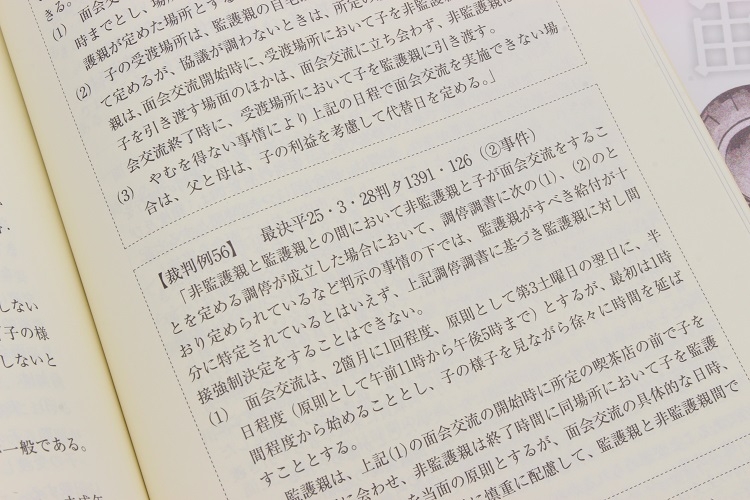 きる。
(1) 面会交流
時までとし、場所
護親が定めた場所とする
(2) 子の受渡場所は、監護親の自宅
て定めるが、協議が調わないときは、所定の
親は、面会交流開始時に、受渡場所において子を非監護親に
子を引き渡す場面のほかは、面会交流に立ち会わず、非監護親は
会交流終了時に、受渡場所において子を監護親に引き渡す。
(3) やむを得ない事情により上記の日程で面会交流を実施できない場
合は、父と母は、子の利益を考慮して代替日を定める。」
【裁判例56】 最決平25・3・28判タ1391・126(②事件)
「非監護親と監護親との間において非監護親と子が面会交流をするこ
とを定める調停が成立した場合において、調停調書に次の(1)、(2)のと
おり定められているなど判示の事情の下では、監護親がすべき給付が十
分に特定されているとはいえず、上記調停調書に基づき監護親に対し間
接強制決定をすることはできない。
(1) 面会交流は、2箇月に1回程度、原則として第3土曜日の翌日に、半
日程度(原則として午前11時から午後5時まで)とするが、最初は1時
間程度から始めることとし、子の様子を見ながら徐々に時間を延ば
すこととする。
監護親は、上記(1)の面会交流の開始時に所定の喫茶店の前で子を
に会わせ、非監護親は終了時間に同場所において子を監護
を当面の原則とするが、面会交流の具体的な日時、
に慎重に配慮して、監護親と非監護親間で
しない
子の様
しないと
一般である。